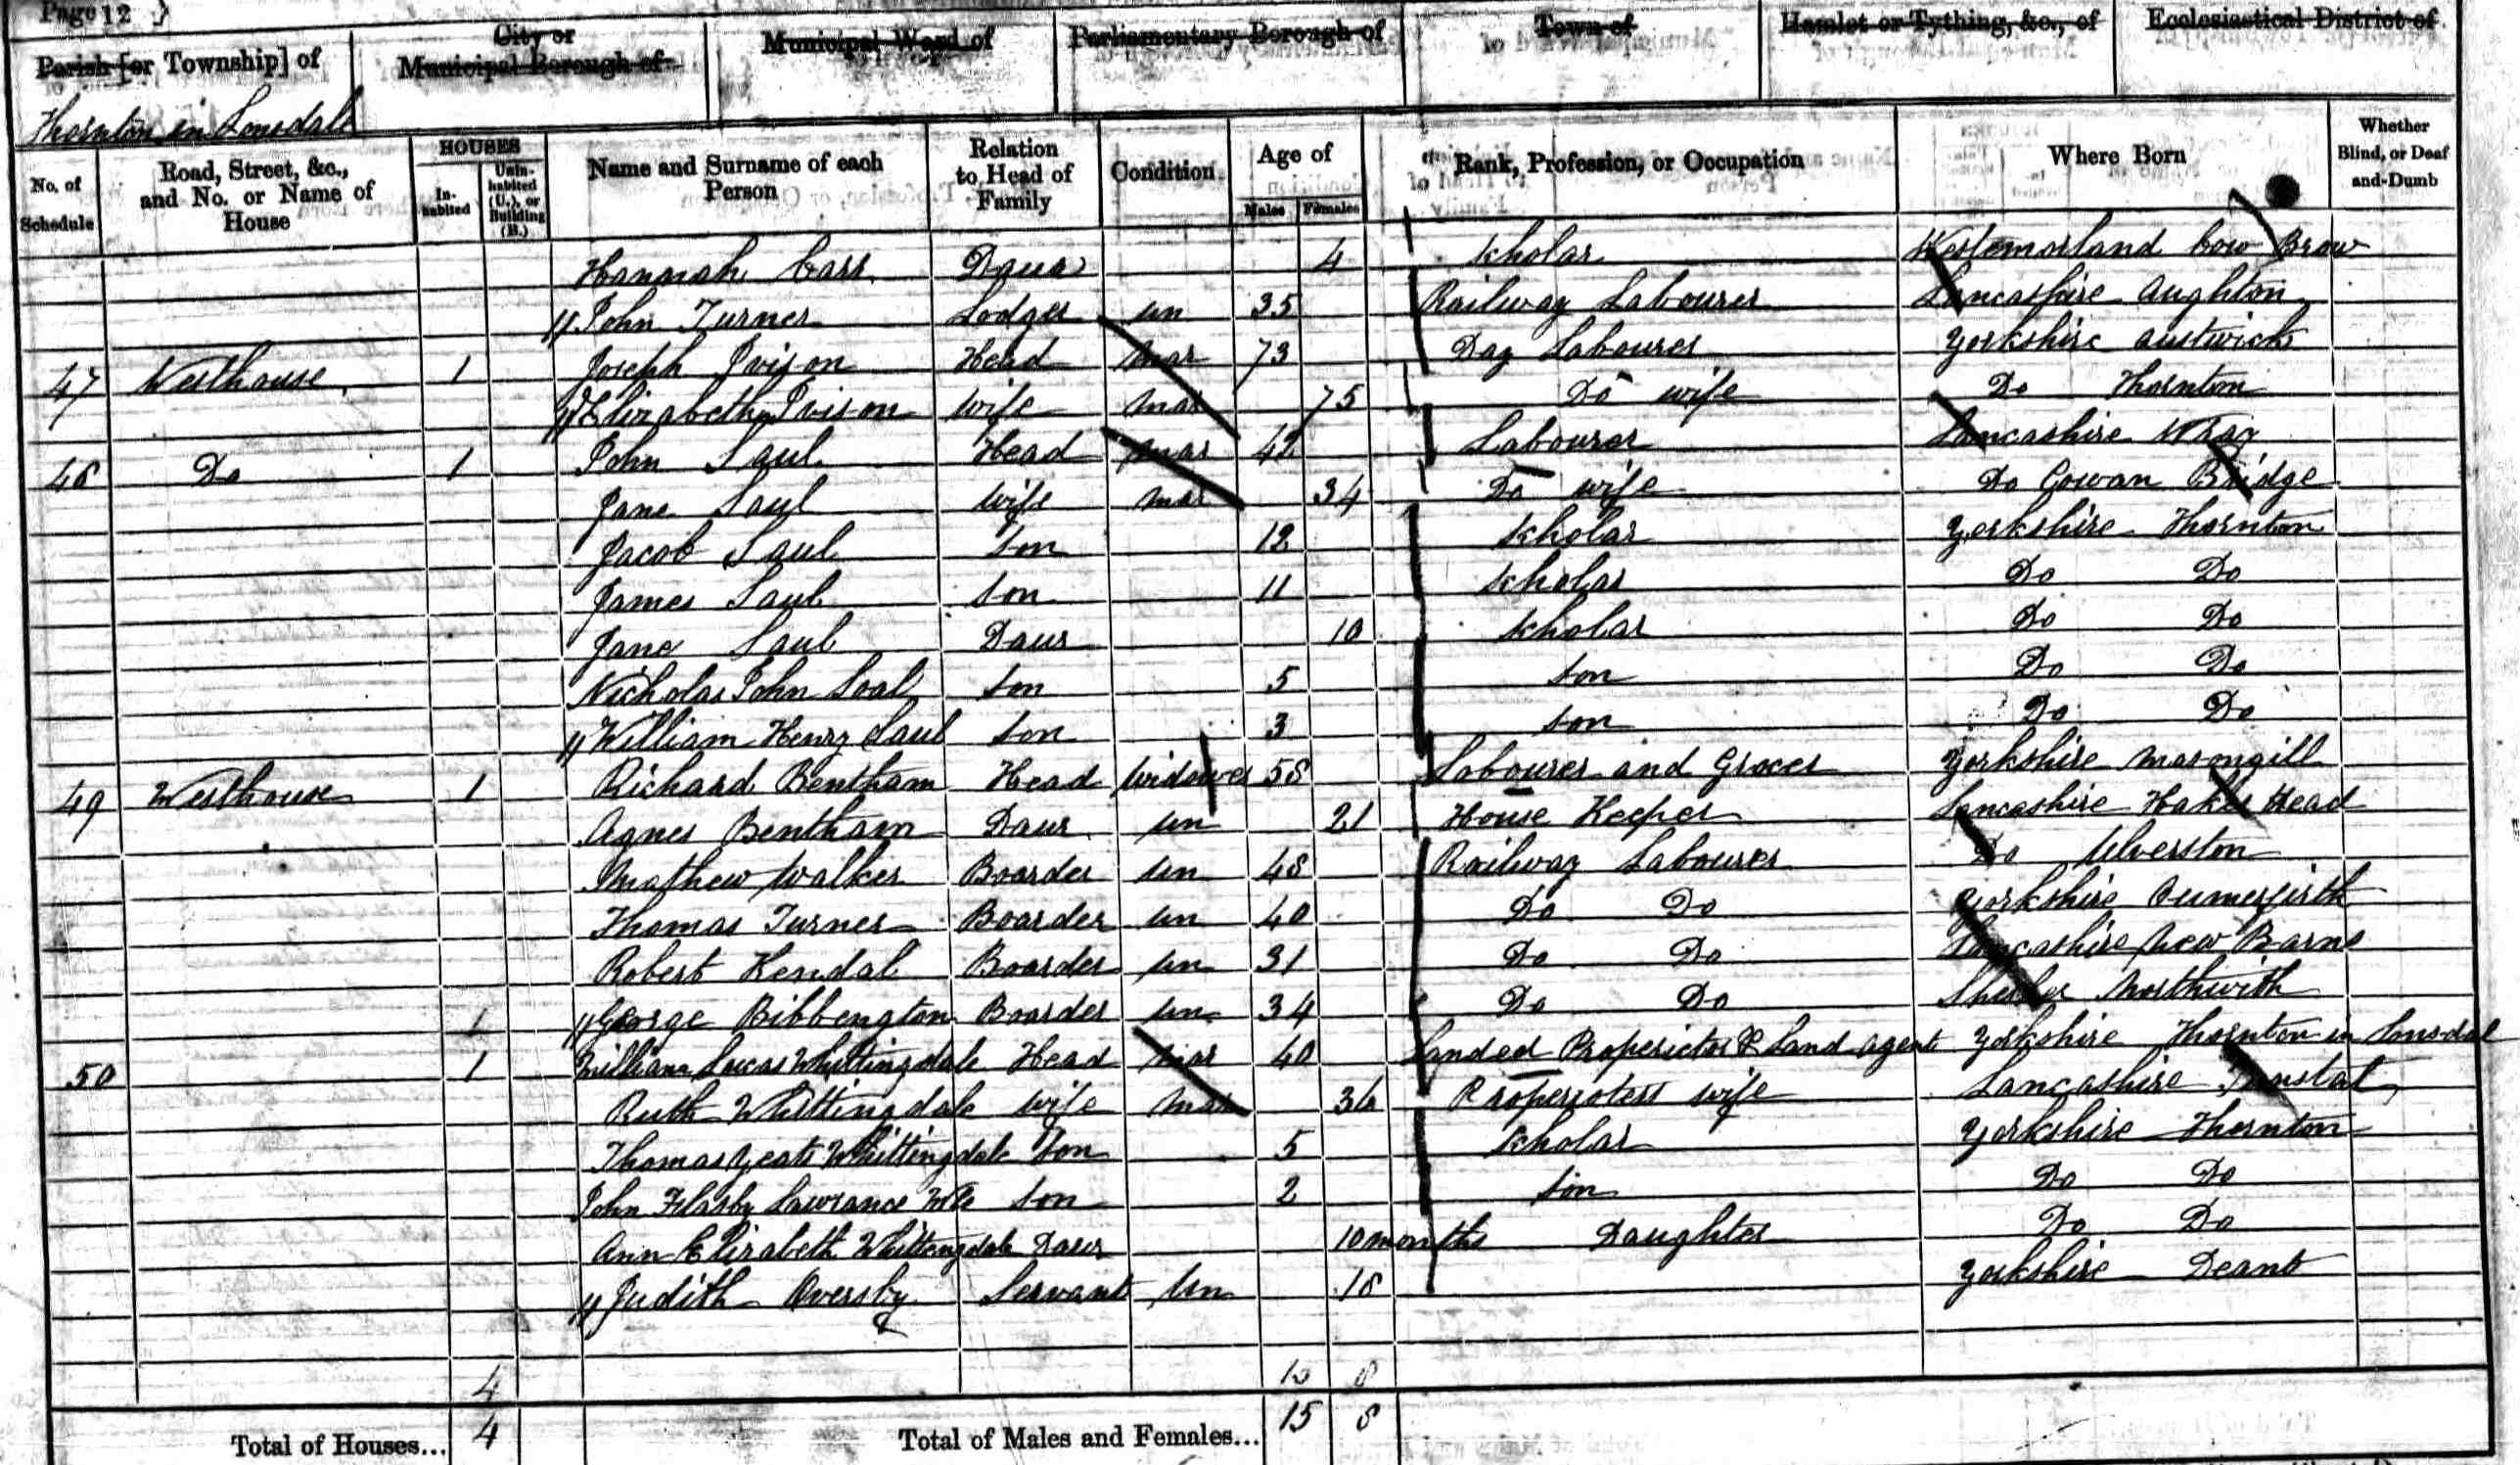 Page 12 }
Parish [or Township] of
City or
Municipal Borough of
Municipal Ward of
Parliamentary Borough of
Town of
Hamlet or Tything, &c., of
Ecclesiastical District of
Thornton in Lonsdale
No. of Schedule
Road, Street, &c., and No. or Name of House
HOUSES
In-habited
Unin-habited (U.), or Building (B.)
Name and Surname of each Person
Relation to Head of Family
Condition
Age of
Males
Females
Rank, Profession, or Occupation
Where Born
Whether Blind, or Deaf and-Dumb
Hannah Carr Daur 4 Scholar Westemorland Cow Brow
John Turner Lodger un 35 Railway Labourer Lancashire Aughton
47 Westhouse 1 Joseph Ivison Head mar 73 Day Labourer Yorkshire Austwick
Elizabeth Ivison wife mar 75 Do wife Do Thornton
48 Do 1 John Saul Head mar 42 Labourer Lancashire Wray
Jane Saul wife mar 34 Do wife Do Cowan Bridge
Jacob Saul son 12 Scholar Yorkshire Thornton
James Saul son 11 Scholar Do Do
Jane Saul Daur 10 Scholar Do Do
Nicholas John Soal son 5 son Do Do
William Henry Saul son 3 son Do Do
49 Westhouse 1 Richard Bentham Head widower 58 Labourer and Grocer Yorkshire Masongill
Agnes Bentham Daur un 21 House Keeper Lancashire Haker Head
Mathew Walker Boarder un 48 Railway Labourer Do Ulverston
Thomas Turner Boarder un 40 Do Do Yorkshire
Robert Kendal Boarder un 31 Do Do Lancashire New Barns
1 George Bibbengton Boarder un 34 Do Do Northwith
50 1 William Lucas Whittingdale Head mar 40 Landed Properietor & Land Agent Yorkshire Thornton in Lonsdal
Ruth Whittingdale wife mar 36 wife Lancashire Tunstal
Thomas Yeats Whittingdale Son 5 Scholar Yorkshire Thornton
John Flasby Lawrance son 2 son Do Do
Ann Elizabeth Whittengdale Daur 10 months Daughter Do Do
Judith Oversby Servant Un 18 Yorkshire Deant
4 8
Total of Houses... 4 Total of Males and Females... 15 8